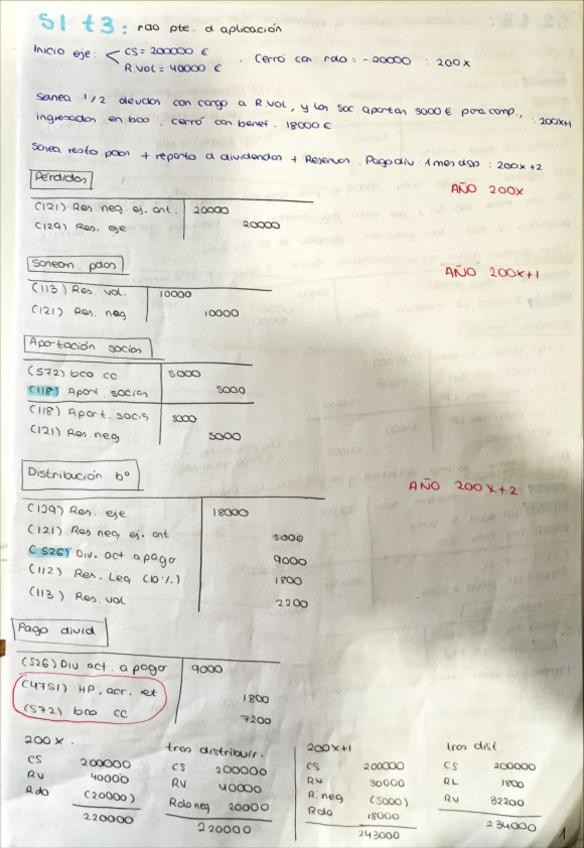 S1 t3: rdo pte. d aplicación
Inicio eje: CS = 200000 €
R.Vol = 40000 € . Cerró con rdo = -20000 : 200X
Sanea 1/2 deudas con cargo a R.Vol, y los soc aportan 5000 € para comp.,
ingresados en bco. cerró con benef. 18000 €
: 200X+1
Sanea resto pdas + reparto d dividendos + Reservas. Pago div : 1 mes dsp : 200X+2
Pérdidas
AÑO 200X
(121) Res neg ej. ant. 20000
(129) Res. eje 20000
Saneam. pdas
AÑO 200X+1
(113) Res. Vol. 10000
(121) Res. neg 10000
Aportación socios
(572) bco cc 5000
(118) Aport. socios 5000
(118) Aport. socis 5000
(121) Res. neg 5000
Distribución bº
AÑO 200X+2
(129) Res. eje 18000
(121) Res neg ej. ant 5000
(526) Div. act a pago 9000
(112) Res. Leg (10%) 1800
(113) Res. vol 2200
Pago divid
(526) Div act. a pago 9000
(4751) HP, acr. ret 1800
(572) bco cc 7200
200X. tras distribuir. 200X+1 tras dist
CS 200000 CS 200000 CS 200000 CS 200000
RV 40000 RV 40000 RV 30000 RL 1800
Rdo (20000) Rdo neg 20000 R. neg (5000) RV 32200
220000 220000 Rdo 18000 234000
243000
1